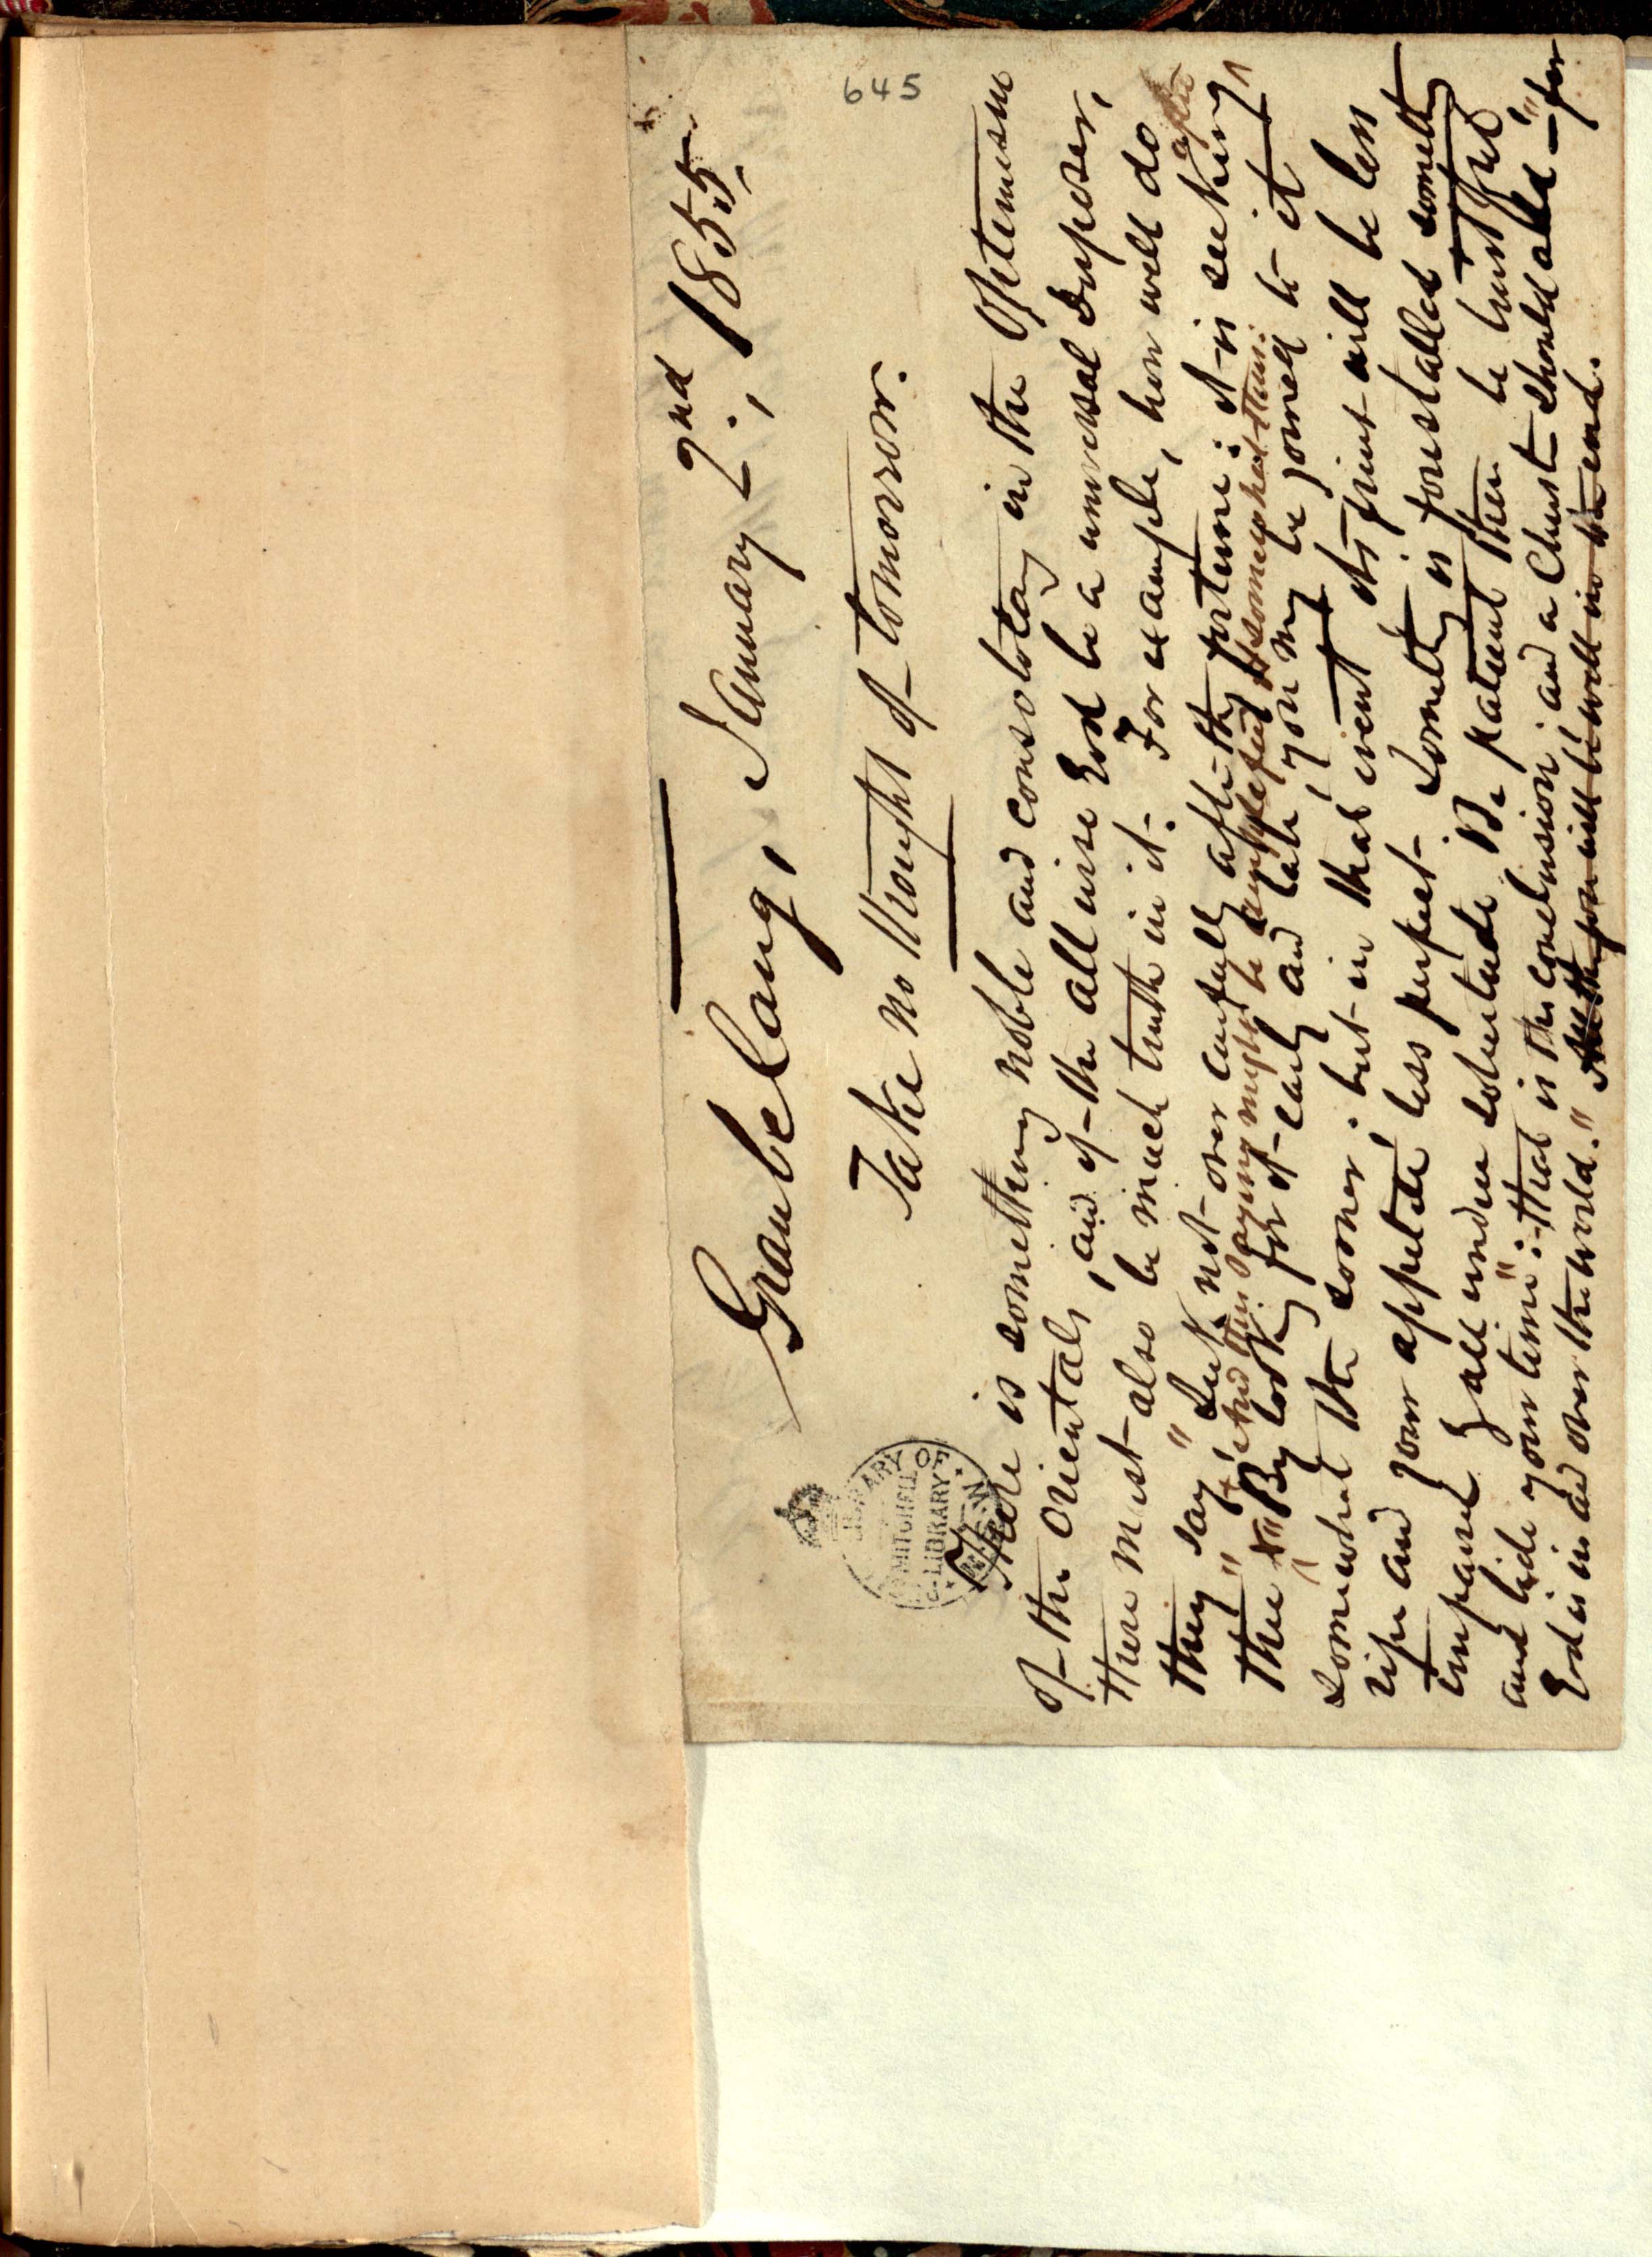 645
Grambelang, January 2nd., 1855,
Take no thought of tomorrow.
LIBRARY OF
MITCHELL
LIBRARY
There is something noble and consolotary in the Optimism
of the Orientals, and if the all wise God be a universal Disposer,
there must also be much truth in it. For example, how well do
they say, "Seek not over carefully after thy fortune: it is seeking after
thee" and this saying might be amplified somewhat thus:
"By looking for it early and late, you may be joined to it
somewhat the sooner: but in that event its fruit will be less
ripe and your appetite less perfect. Something is forestalled something
impaired by all undue solicitude. Be patient then be trustful
and bide your time": that is the conclusion; and a Christ should add "for
God is in and over the world." all will be well in the end.